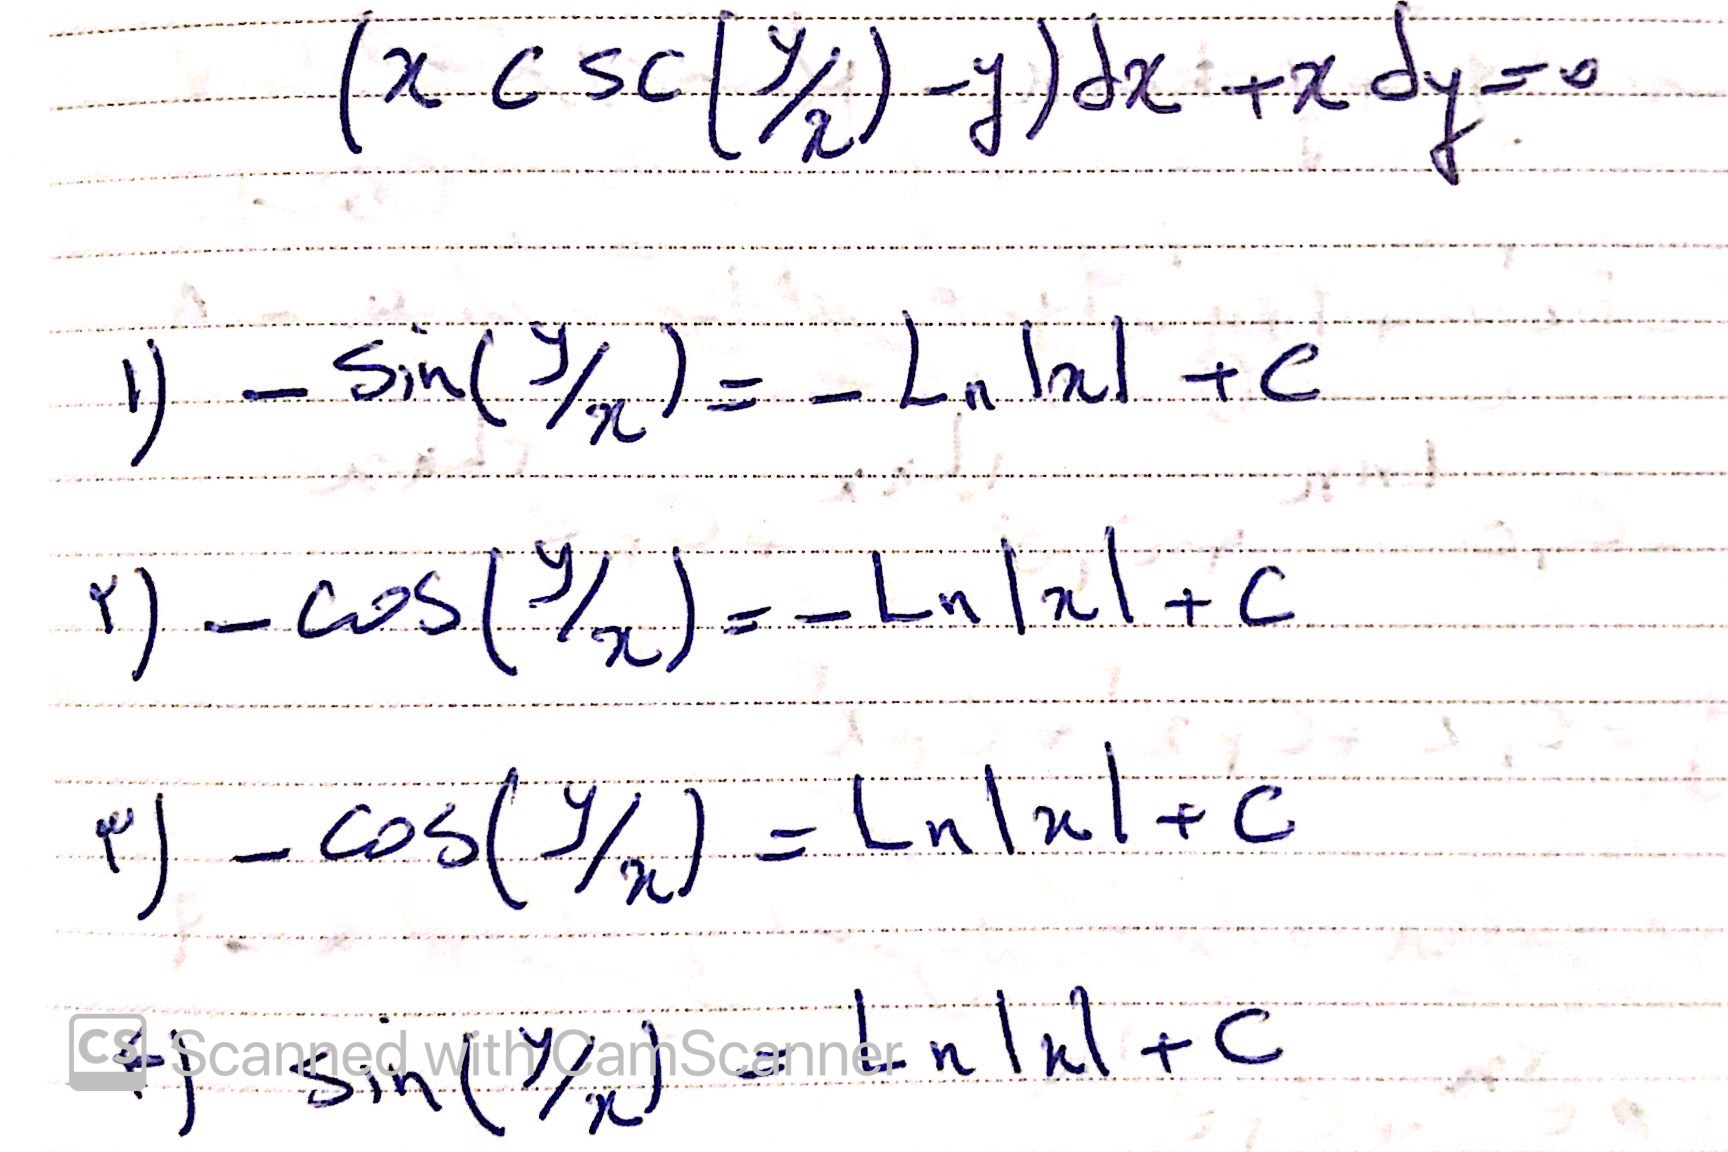 (x csc(y/x) - y)dx + x dy = 0
۱) - Sin(y/x) = - Ln |x| + C
۲) - cos(y/x) = - Ln |x| + C
۳) - cos(y/x) = Ln |x| + C
۴) sin(y/x) = Ln |x| + C
CS Scanned with CamScanner